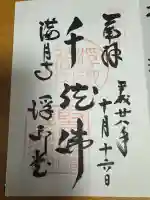 奉拝
廿八年
十月十六日
千体佛
満月寺
浮御堂